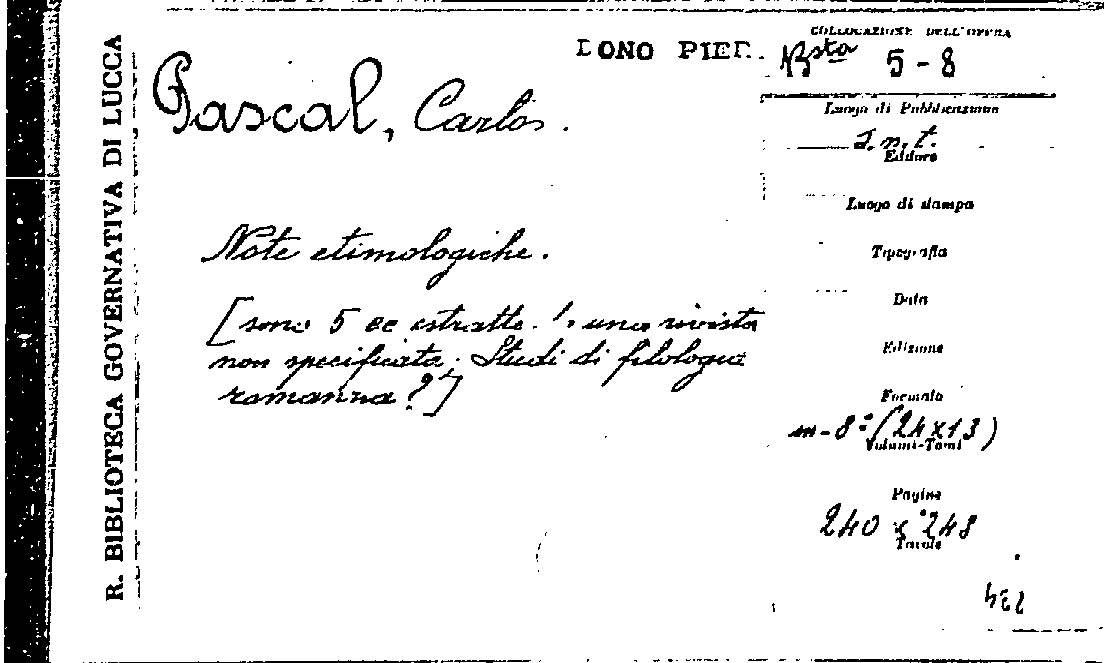 R. BIBLIOTECA GOVERNATIVA DI LUCCA
DONO PIER.
Pascal, Carlos.
Note etimologiche.
[sono 5 cc estratte una rivista
non specificata; Studi di filologia
romanza?]
COLLOCAZIONE DELL'OPERA
Bsta 5-8
Luogo di Pubblicazione
s.n.t.
Editore
Luogo di stampa
Tipografia
Data
Edizione
Formato
in-8° (24x13)
Volumi-Tomi
Pagine
240 248
Tavole